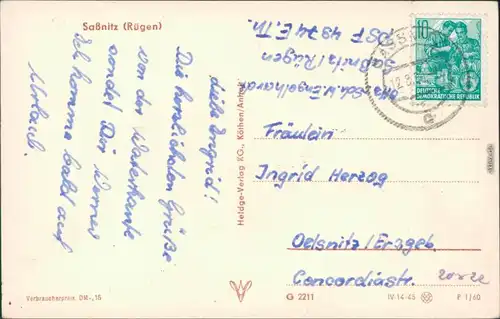 Saßnitz (Rügen)
Liebe Ingrid!
Die herzlichsten Grüße
von der Waterkante
sendet Dir Werner
Ich komme bald auf
Urlaub.
Verbraucherpreis DM -,15
Heldge-Verlag KG., Köthen/Anhalt
Engelhardt
Saßnitz/Rügen
PSF 4374 E. Th.
10
DEUTSCHE
DEMOKRATISCHE REPUBLIK
SASSNITZ
12.8.
a
Fräulein
Ingrid Herzog
Oelsnitz/Erzgeb.
Concordiastr.
G 2211
IV-14-45
F 1/60